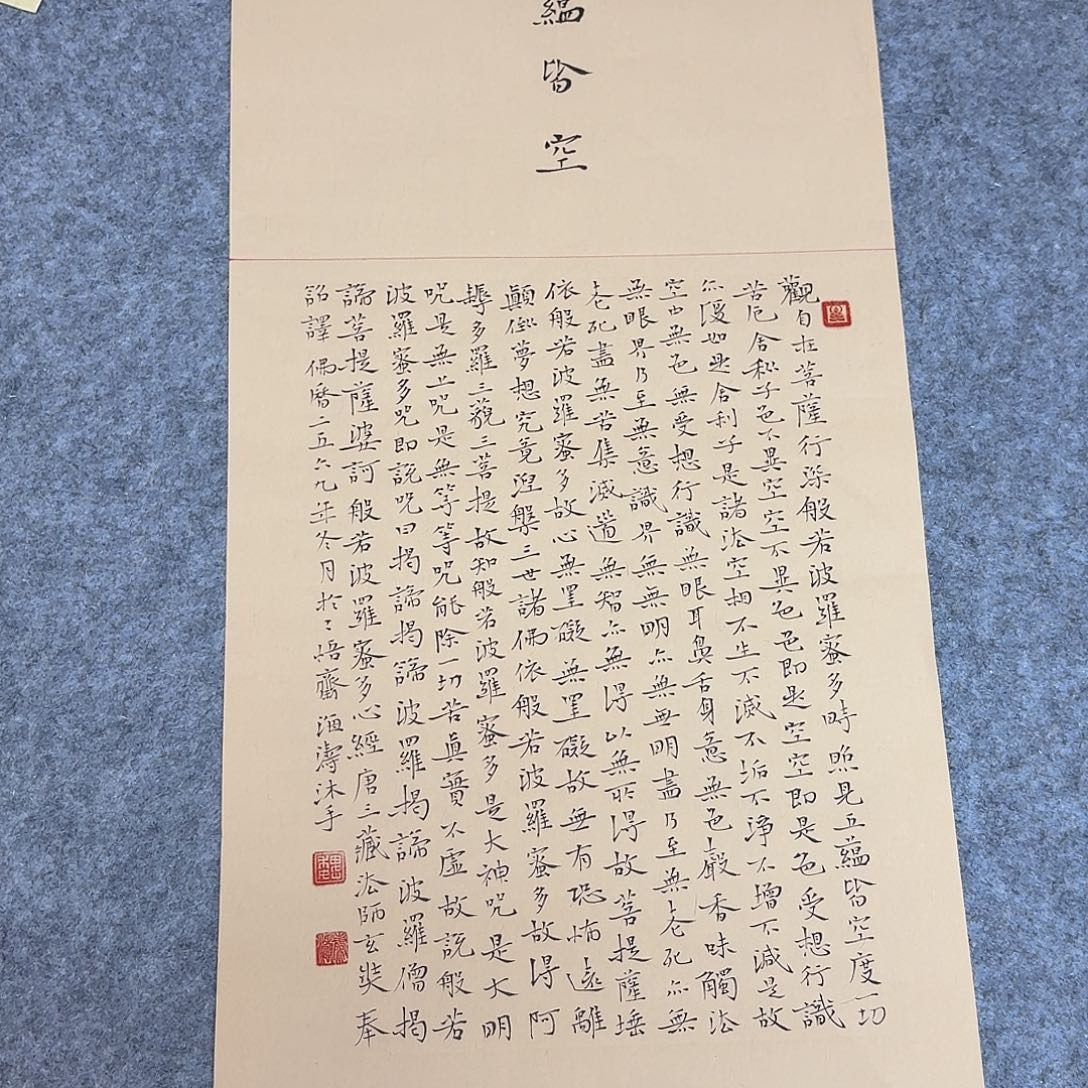 蘊皆空
觀自在菩薩行深般若波羅蜜多時照見五蘊皆空度一切
苦厄舍利子色不異空空不異色色即是空空即是色受想行識
亦復如是舍利子是諸法空相不生不滅不垢不淨不增不減是故
空中無色無受想行識無眼耳鼻舌身意無色聲香味觸法
無眼界乃至無意識界無無明亦無無明盡乃至無老死亦無
老死盡無苦集滅道無智亦無得以無所得故菩提薩埵
依般若波羅蜜多故心無罣礙無罣礙故無有恐怖遠離
顛倒夢想究竟涅槃三世諸佛依般若波羅蜜多故得阿
耨多羅三藐三菩提故知般若波羅蜜多是大神咒是大明
咒是無上咒是無等等咒能除一切苦真實不虛故說般若
波羅蜜多咒即說咒曰揭諦揭諦波羅揭諦波羅僧揭
諦菩提薩婆訶般若波羅蜜多心經唐三藏法師玄奘奉
詔譯佛曆二五六九年冬月於悟齋海濤沐手